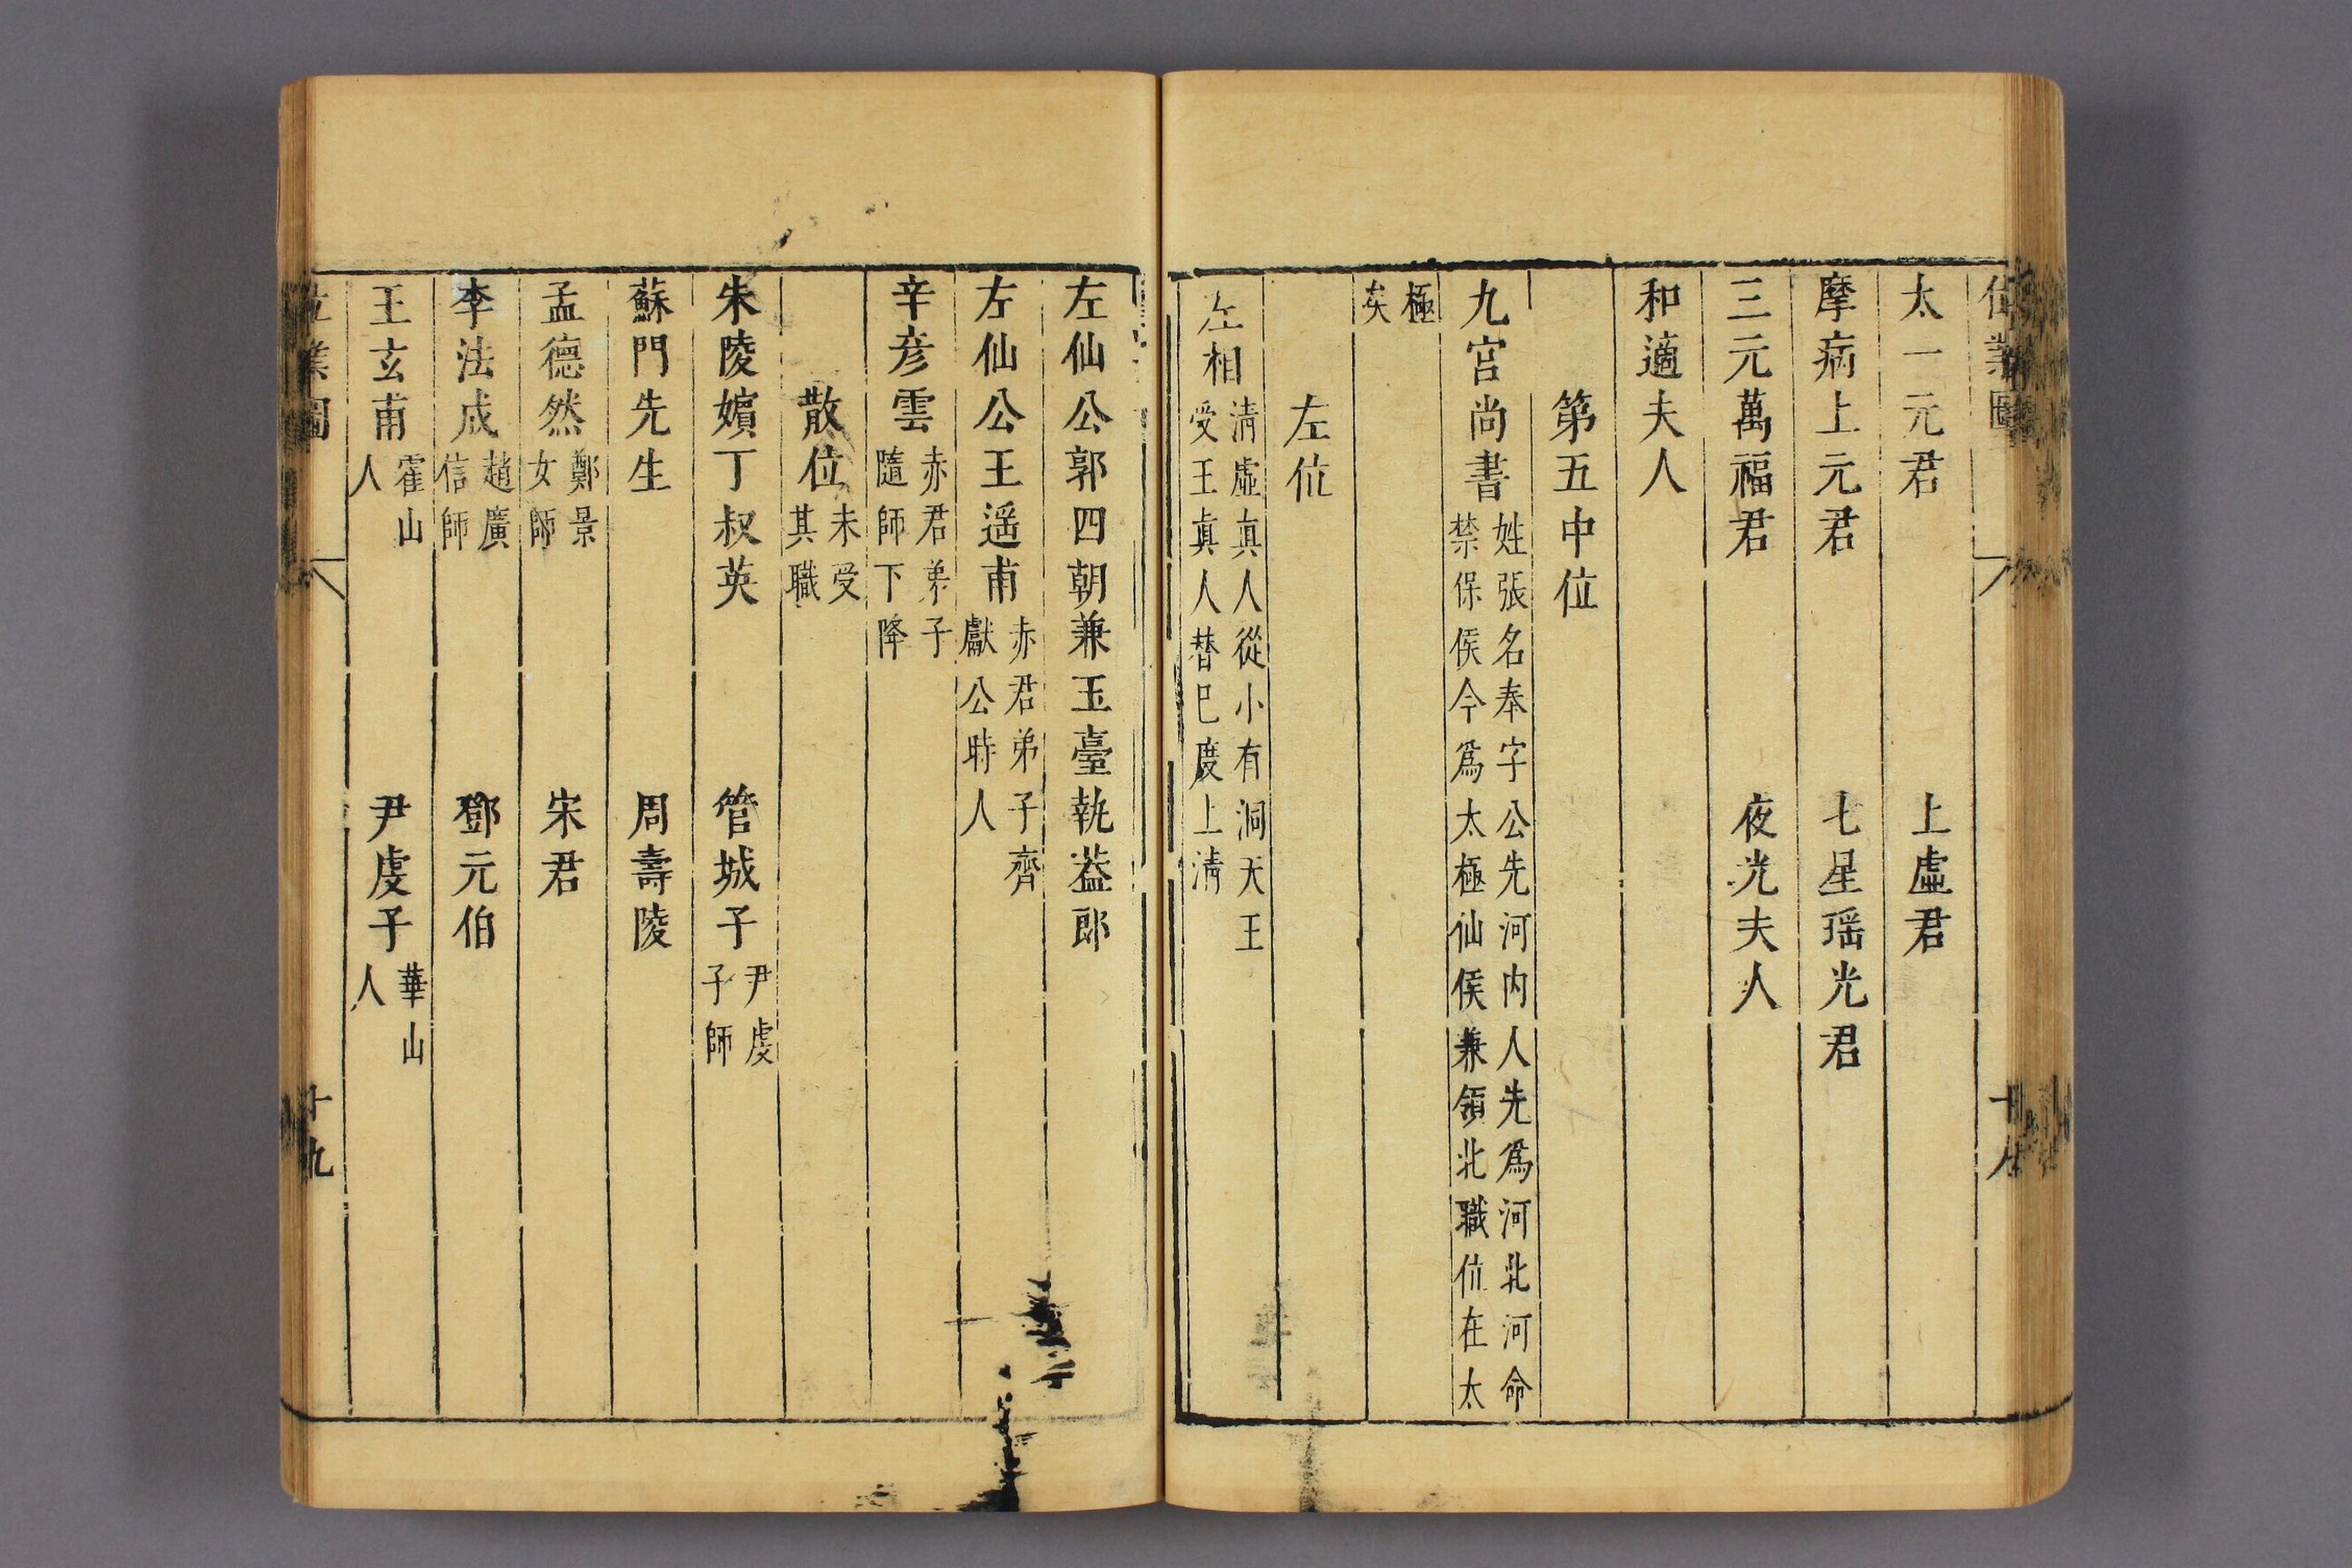 位業圖 十八
太一元君 上虛君
摩病上元君 七星瑶光君
三元萬福君 夜光夫人
和適夫人
第五中位
九宮尚書 姓張名奉字公先河内人先爲河北河命
禁保侯今爲太極仙侯兼領北職位在太
極
矣
左位
左相 淸虛真人從小有洞天王
受王真人替巳度上淸
左仙公郭四朝兼玉臺執葢郎
左仙公王遥甫 赤君弟子齊
獻公時人
辛彦雲 赤君弟子
隨師下降
散位 未受
其職
朱陵嬪丁叔英 管城子 尹虔
子師
蘇門先生 周壽陵
孟德然 鄭景
女師 宋君
李法成 趙廣
信師 鄧元伯
王玄甫 霍山
人 尹虔子 華山
人
位業圖 十九